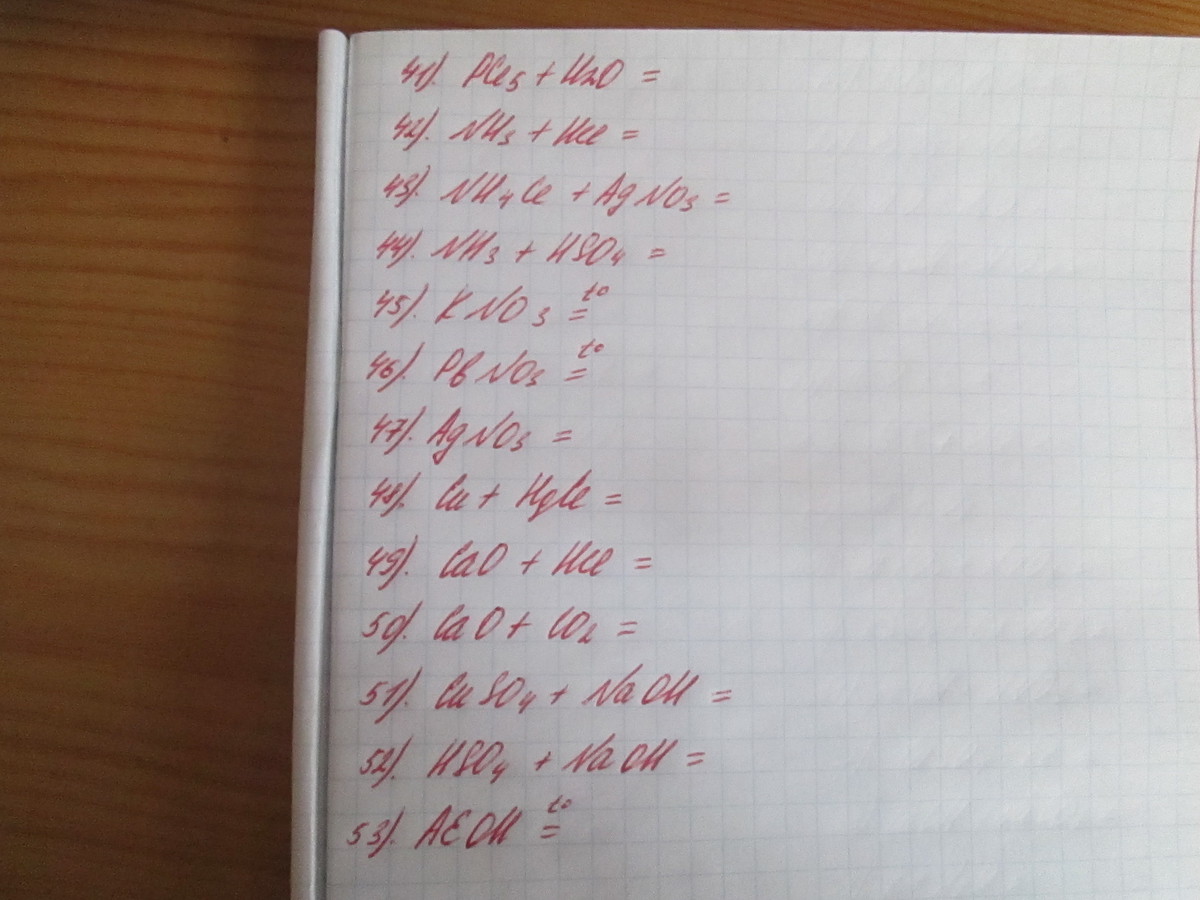 41). PCl5 + H2O =
42). NH3 + HCl =
43). NH4Cl + AgNO3 =
44). NH3 + HSO4 =
45). KNO3 t°=
46). PbNO3 t°=
47). AgNO3 =
48). Cu + HgCl =
49). CaO + HCl =
50). CaO + CO2 =
51). CuSO4 + NaOH =
52). HSO4 + NaOH =
53). AlOH t°=